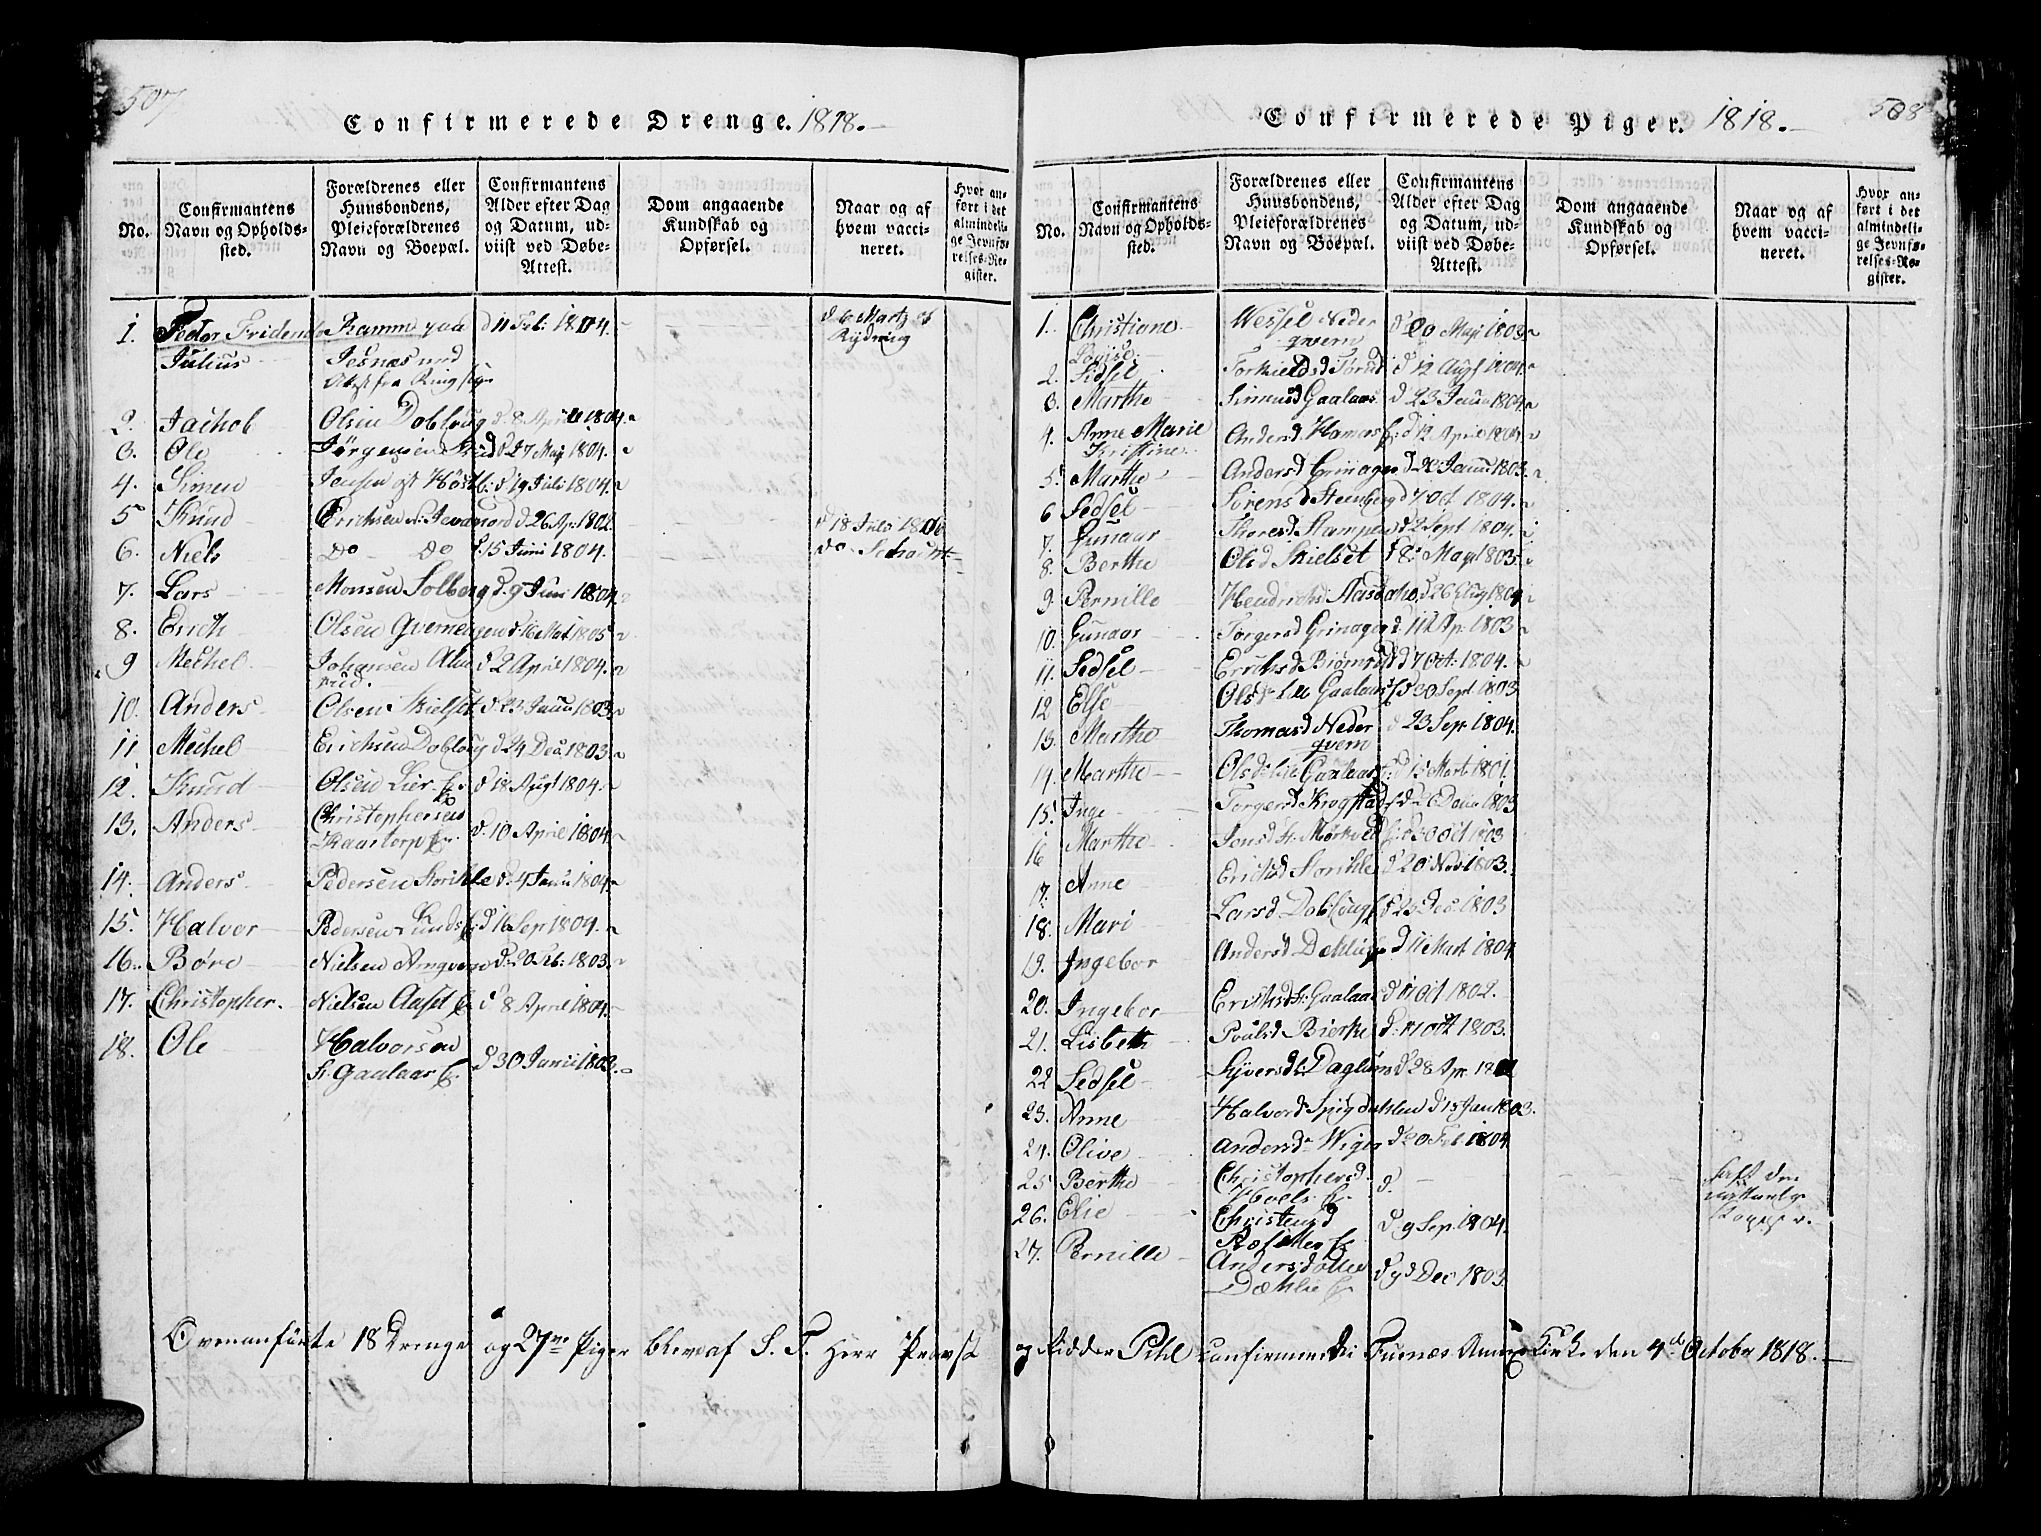 507
Confirmerede Drenge. 1818.
No.
Confirmantens Navn og Opholds-sted.
Forældrenes eller Huusbondens, Pleieforældrenes Navn og Boepæl.
Confirmantens Alder efter Dag og Datum, ud-viist ved Døbe-Attest.
Dom angaaende Kundskab og Opførsel.
Naar og af hvem vacci-neret.
Hvor an-ført i det almindeli-ge Jevnfø-relses-Re-gister.
1. Julius Ramm paa d 11 Feb: 1804.
Jesnæs
2. Jachob Olsen Dobloug d 8 April 1804.
3. Ole Jørgensen d 27 Mai 1804.
4. Simen Jensen d 19 Juli 1804.
5 Knud Erichsen d 26 Ap. 1802
d 18 Juli
6. Niels Do Do d. 15 Juni 1804.
do
7. Lars Monsen Solberg d. 9 Juni 1804
8. Erich Olsen 1805
9 Mechel Johansen Alm d 2 April 1804.
rud.
10. Anders Olsen Skielset d 23 Janu 1803
11 Mechel Erichsen Dobloug d 24 Dec. 1803.
12. Knud Olsen Lier d 18 Augt 1804.
13. Anders Christophersen d. 10 April 1804
Kaatorp
14. Anders Pedersen d. 4 Janu 1804
15. Halvor Pedersen Lunds d 16 Sep 1804.
16. Børe Nielsen d. 20 Feb: 1803.
17. Christopher Nielsen d 8 April 1804.
18. Ole Halvorsen d 30 Junii
Gaalaas
508
Confirmerede Piger. 1818.
No.
Confirmantens Navn og Opholds-sted.
Forældrenes eller Huusbondens, Pleieforældrenes Navn og Boepæl.
Confirmantens Alder efter Dag og Datum, ud-viist ved Døbe-Attest.
Dom angaaende Kundskab og Opførsel.
Naar og af hvem vacci-neret.
Hvor an-ført i det almindeli-ge Jevnfø-relses-Re-gister.
1. Christiane Wessel Neder d 20 Maji 1803
Lovise qvern
2. Sidsel d 12 Augt 1804
3. Marthe Simensd Gaalaas d 23 Janu 1804
4. Anne Marie Andersd d 12 April 1804
Kristine
5. Marthe Andersd Grinager d 20 Janu 1803
6 Sedsel Sørensd Stenberg d 7 Oct. 1804.
7. Gunaar Thoresd Stampen d 2 Sept 1804.
8. Berthe Olsd Skielset Maji 1803
9 Pernille Hendrichsd Aasbake d 26 Aug 1804
10. Gunaar Torgersd Grinager d. 11 Ap. 1803
11. Sedsel Erichsd d 7 Oct. 1804.
12 Else Olsd Lille Gaalaas d 30 Sept 1803
13. Marthe Thomasd Neder d 23 Sep. 1804.
qvern
14. Marthe Olsd Lille Gaalaas d 15 Mart 1801.
15. Inge Torgersd Krogstad 1803
16 Marthe Jensd St. Mørkved d 30 Oct 1803
17. Anne Erichsd d 20 Nov 1803.
18. Mari Larsd Dobloug d 23 Dec. 1803
19. Ingebor Andersd Dehlie d 11 Mart 1804
20. Ingebor Erichsd St. Gaalaas d 11 Oct 1802.
21. Lisbeth Poulsd Bierke d. 11 Oct 1803.
22 Sedsel Syversd Daglum d 28 Apr.
23. Anne Halvorsd Spigdahlen d 15 Jan 1803.
24. Olive Andersd Wiger d 20 Feb 1804
25 Berthe Christophersd d.
Hoels
26. Elie Christensd d 9 Sep. 1804.
27. Pernille Andersdatter d 9d Dec 1803
Dæhlie
Ovenanførte 18 Drenge og 27ve Piger bleve af S. T. Herr Provst og Ridder Pihl confirmerede i Furnæs Annex Kirke den 4de October 1818.